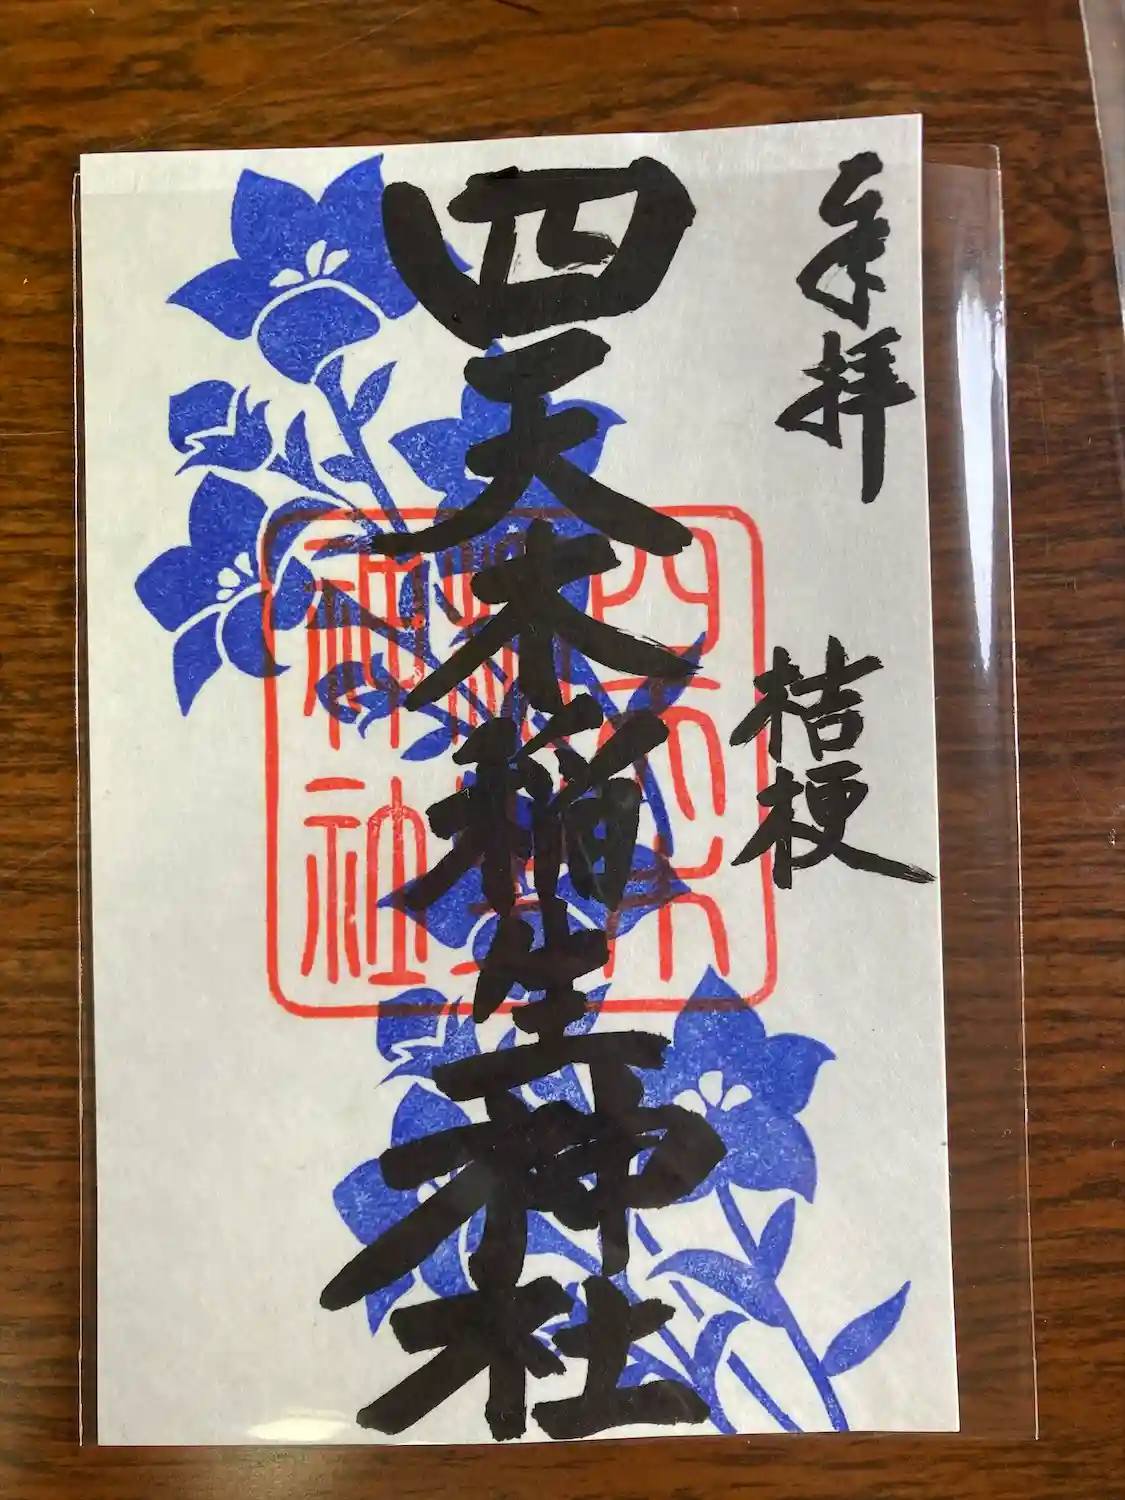 奉拝
桔梗
四天木稲生神社
四天木
神社